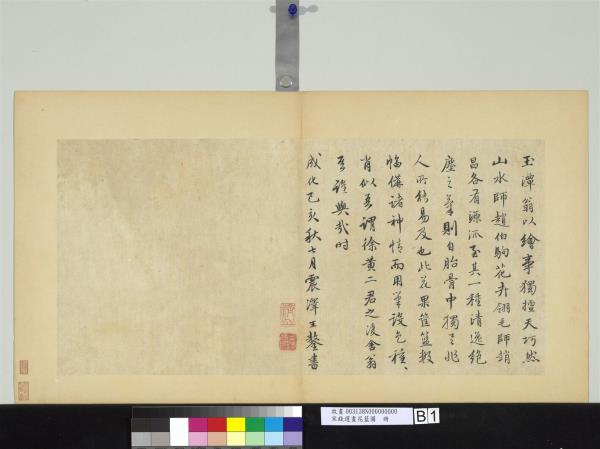 玉潭翁以繪事獨擅天巧然
山水師趙伯駒花卉翎毛師趙
昌各有源派至其一種清逸絕
塵之氣則自胎骨中獨非
人所能易及也此花果筐籃數
幅備諸神情而用筆設色種〻
肖似吾謂徐黃二君之後舍翁
吾誰與哉時
成化己亥秋七月震澤王鏊書
故畫 003138N000000000
宋錢選畫花藍圖 冊
B 1